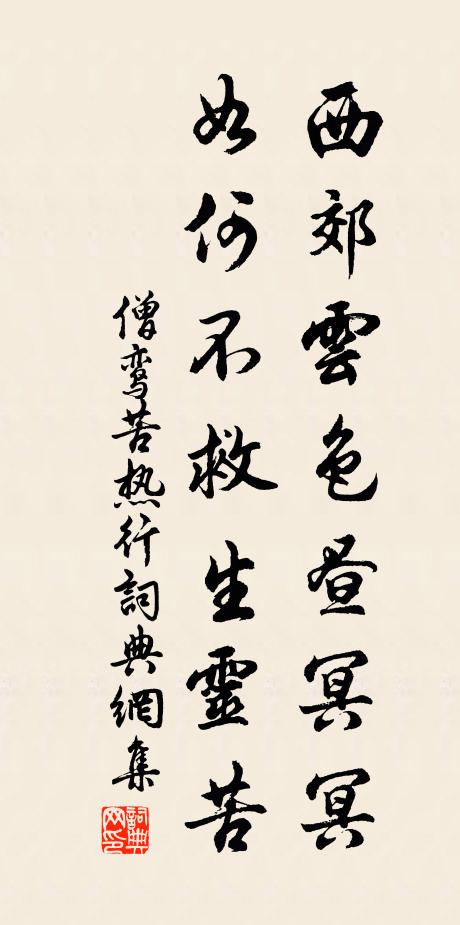 西郊雲色昼冥冥
如何不救生靈苦
僧鸾苦热行詞典網集
詞典网印